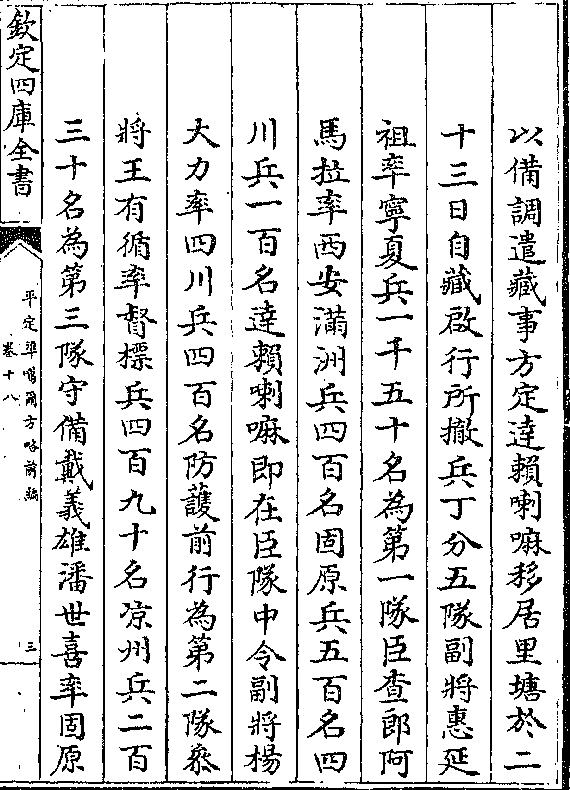 以備調遣藏事方定達賴喇嘛移居里塘於二
十三日自藏啟行所撤兵丁分五隊副將惠延
祖率寧夏兵一千五十名為第一隊臣查郎阿
馬拉率西安滿洲兵四百名固原兵五百名四
川兵一百名達賴喇嘛即在臣隊中令副將楊
大力率四川兵四百名防護前行為第二隊叅
將王有循率督標兵四百九十名凉州兵二百
三十名為第三隊守備戴義雄潘世喜率固原
欽定四庫全書
平定準噶爾方略前編
卷十八
三